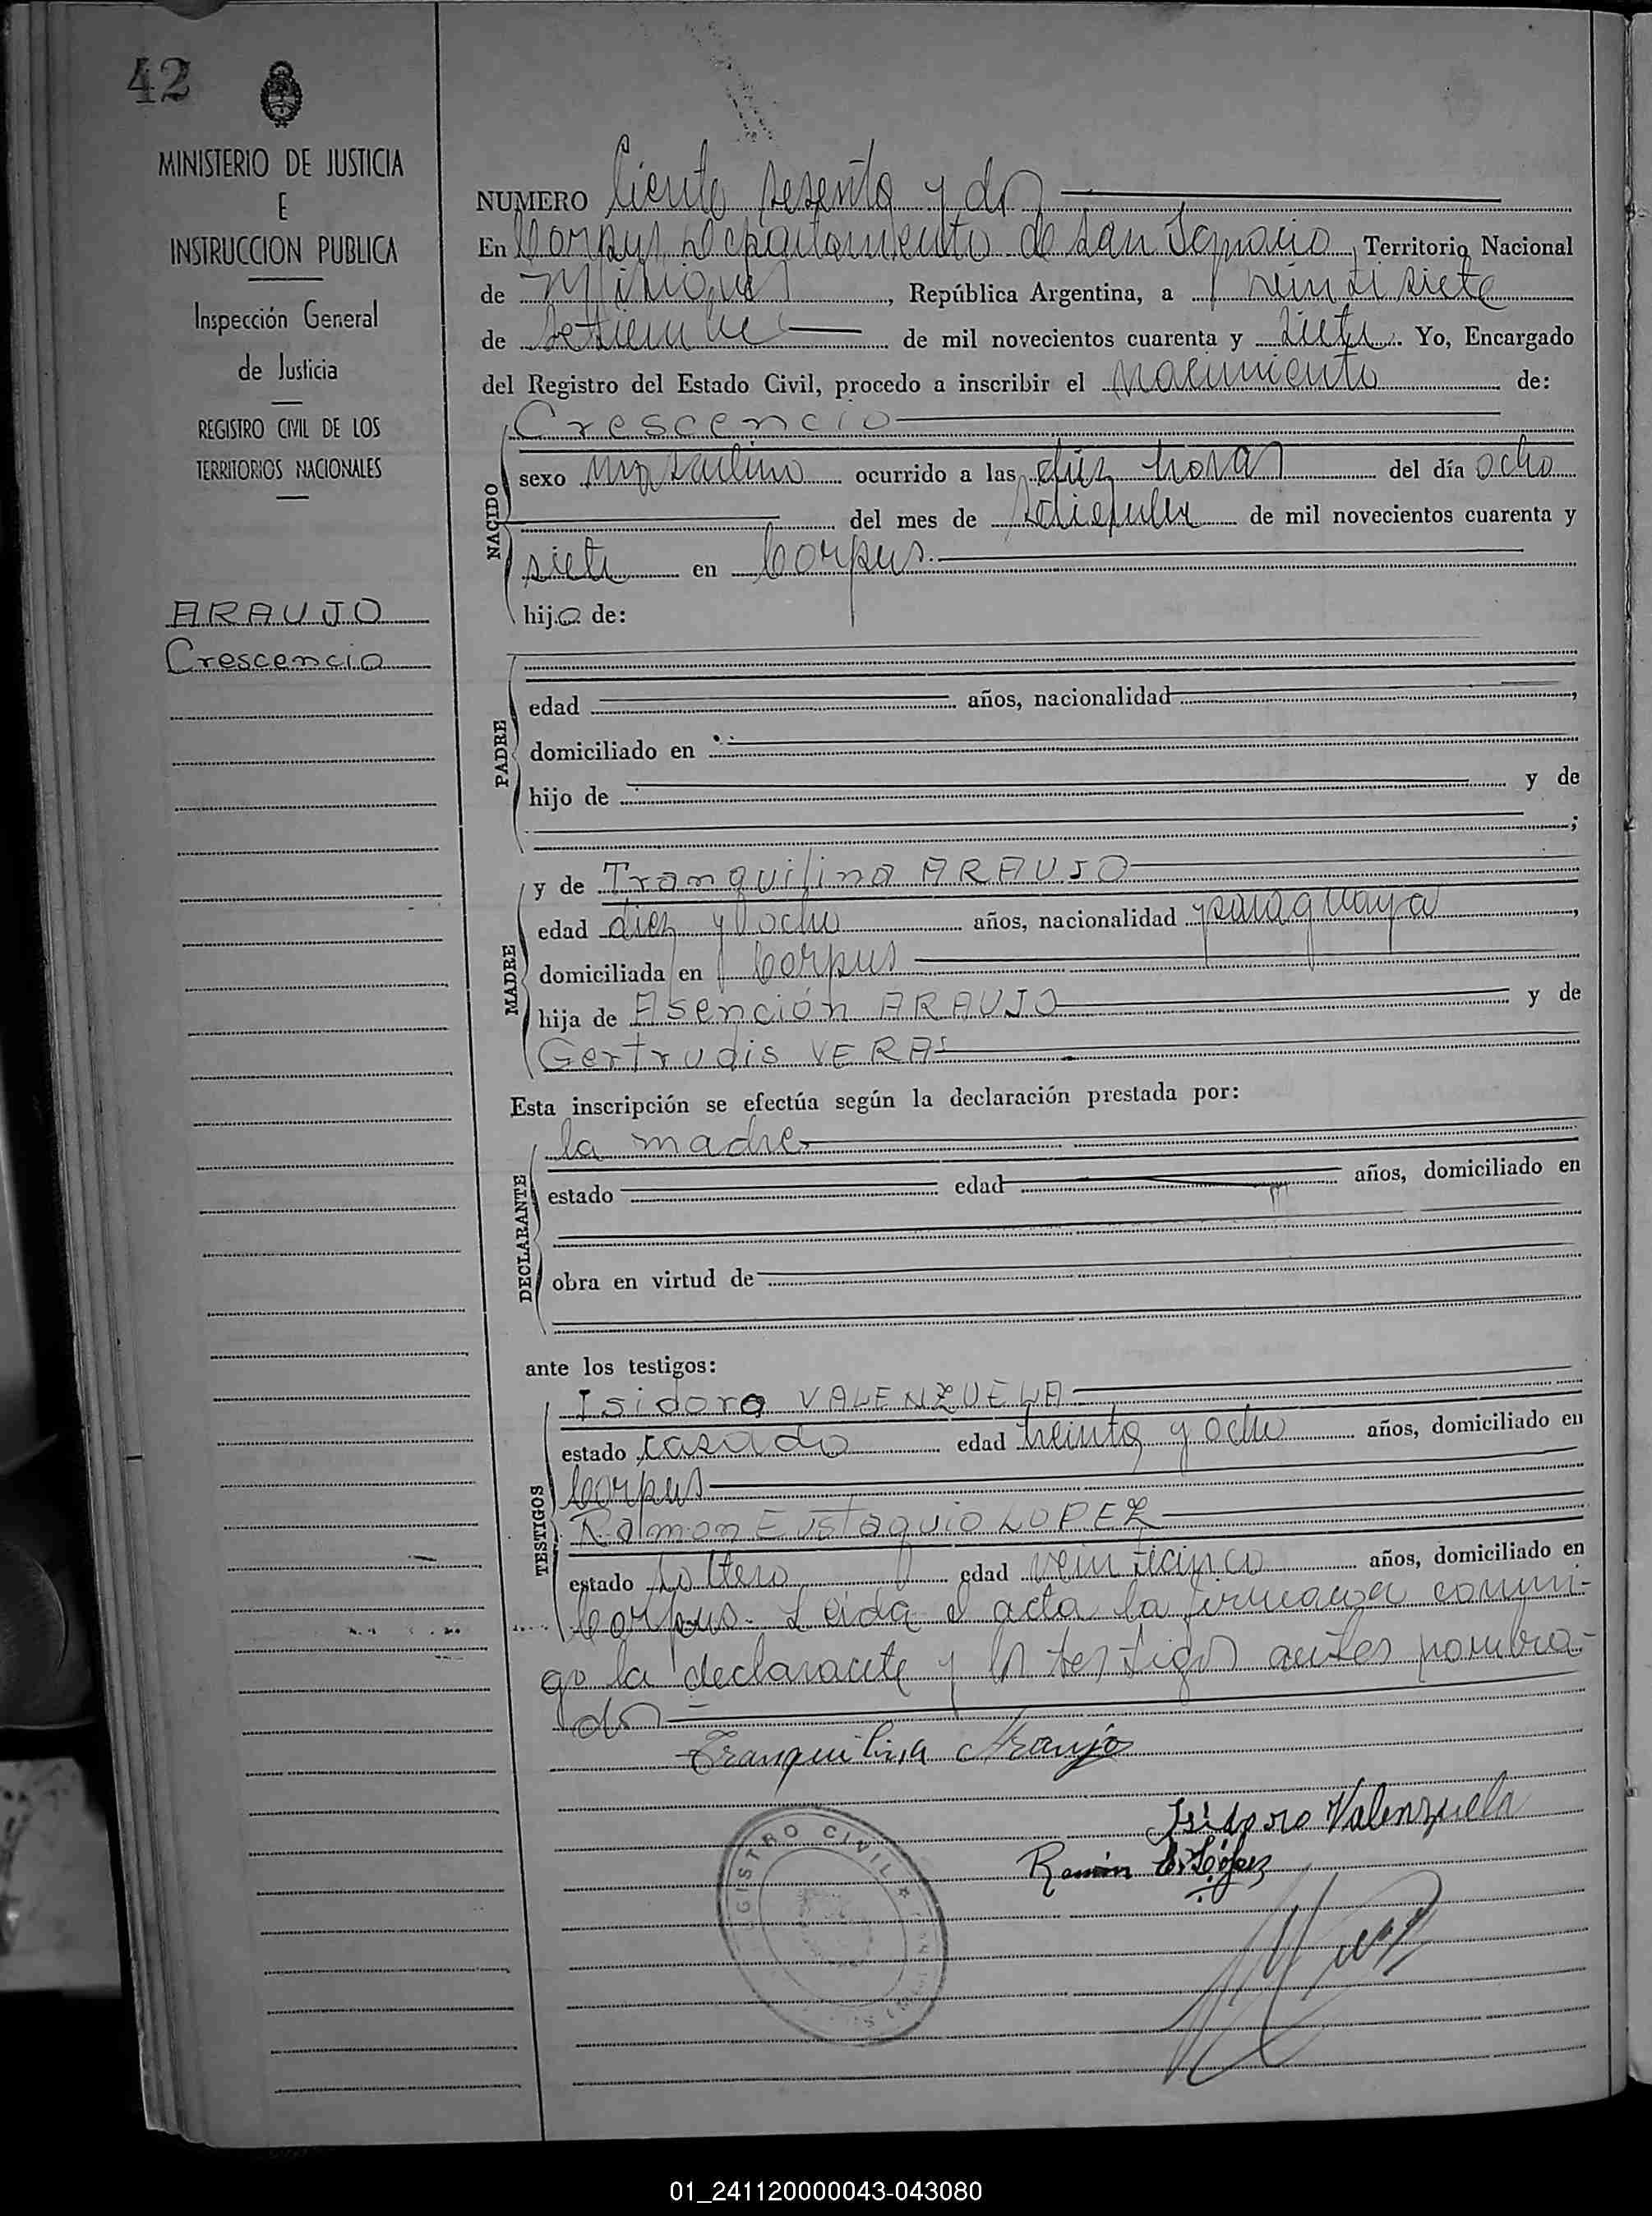 42
MINISTERIO DE JUSTICIA
E
INSTRUCCION PUBLICA
Inspección General
de Justicia
REGISTRO CIVIL DE LOS
TERRITORIOS NACIONALES
ARAUJO
Crescencio
NUMERO Ciento sesenta y dos
En Corpus Departamiento de San Ignacio, Territorio Nacional
de Misiones, República Argentina, a veintisiete
de Setiembre de mil novecientos cuarenta y siete. Yo, Encargado
del Registro del Estado Civil, procedo a inscribir el nacimiento de:
NACIDO
Crescencio
sexo masculino ocurrido a las diez horas del día ocho
del mes de setiembre de mil novecientos cuarenta y
siete en Corpus.
hijo de:
PADRE
edad años, nacionalidad ,
domiciliado en
hijo de y de
;
MADRE
y de Tranquilina ARAUJO
edad diez y ocho años, nacionalidad paraguaya,
domiciliada en Corpus
hija de Asención ARAUJO y de
Gertrudis VERA
Esta inscripción se efectúa según la declaración prestada por:
DECLARANTE
la madre
estado edad años, domiciliado en
obra en virtud de
ante los testigos:
TESTIGOS
Isidoro VALENZUELA
estado casado edad treinta y ocho años, domiciliado en
Corpus
Ramon Eustaquio LOPEZ
estado soltero edad veinticinco años, domiciliado en
Corpus. Leida el acta la firman conmi-
go la declarante y los testigos antes nombra-
dos
Tranquilina Araujo
Isidoro Valenzuela
Ramón E. López
REGISTRO CIVIL
01_241120000043-043080